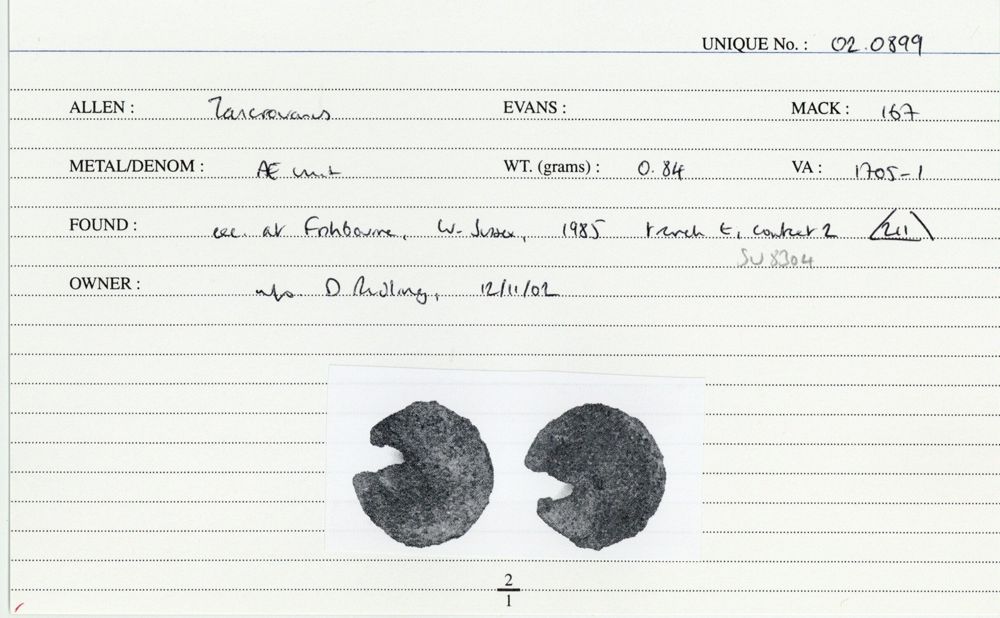 UNIQUE No. : 02.0899
ALLEN : Tasciovanus EVANS : MACK : 167
METAL/DENOM : Æ unit WT. (grams) : 0.84 VA : 1705-1
FOUND : exc. at Fishbourne, W. Sussex, 1985 trench E, context 2 211
SU 8304
OWNER : D Rudling, 12/11/02
2
1